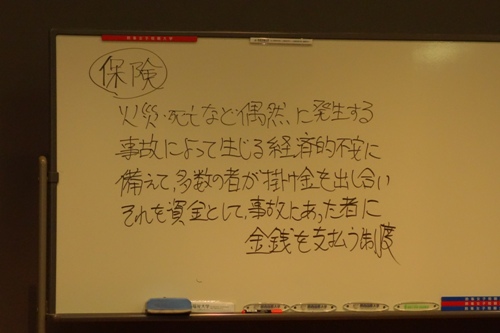 保険
火災・死亡など偶然に発生する
事故によって生じる経済的不安に
備えて、多数の者が掛け金を出し合い
それを資金として、事故にあった者に
金銭を支払う制度